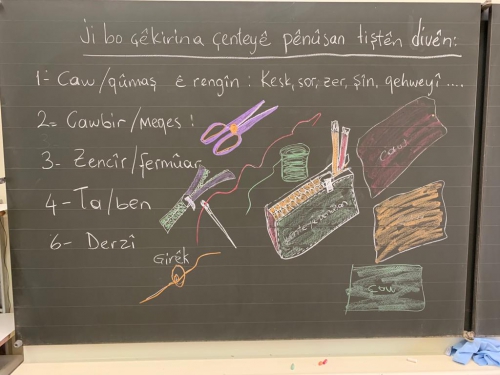 Ji bo çêkirina çenteyê pênûsan tiştên divên:
1- Caw/qûmaş ê rengîn: Kesk, sor, zer, şîn, qehweyî ....
2- Cawbir/Meqes!
3- Zencîr/fermûar
4- Ta/ben
6- Derzî
Girêk
Caw